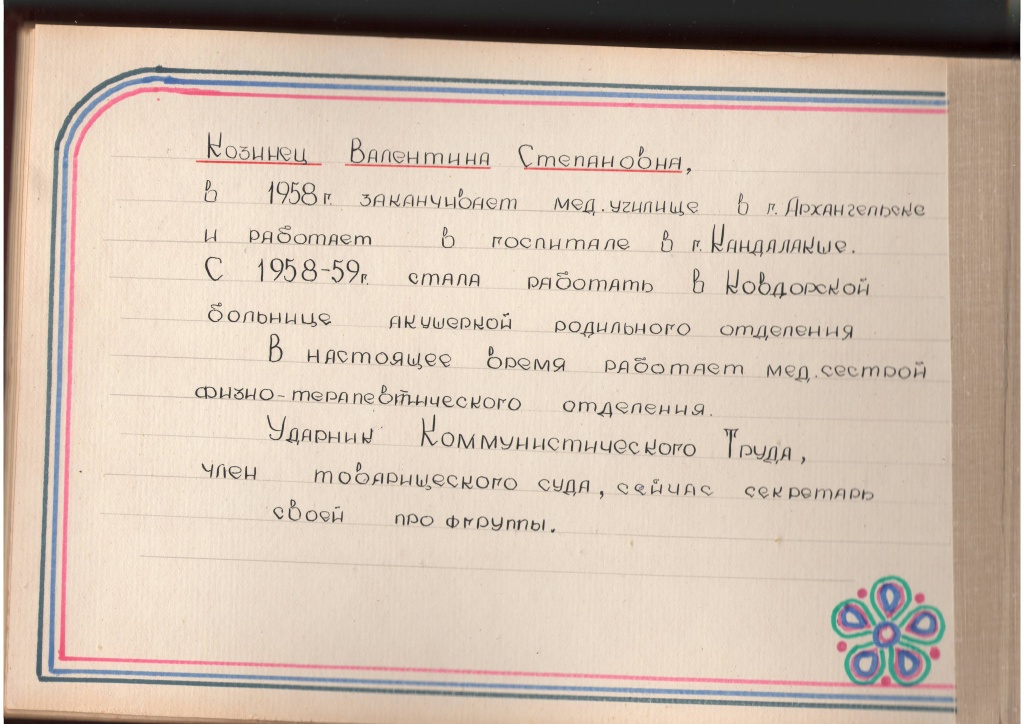 Козинец Валентина Степановна,
в 1958 г. заканчивает мед. училище в г. Архангельске
и работает в госпитале в г. Кандалакше.
С 1958-59 г. стала работать в Ковдорской
больнице акушеркой родильного отделения
В настоящее время работает мед. сестрой
физио-терапевтического отделения.
Ударник Коммунистического Труда,
член товарищеского суда, сейчас секретарь
своей профгруппы.